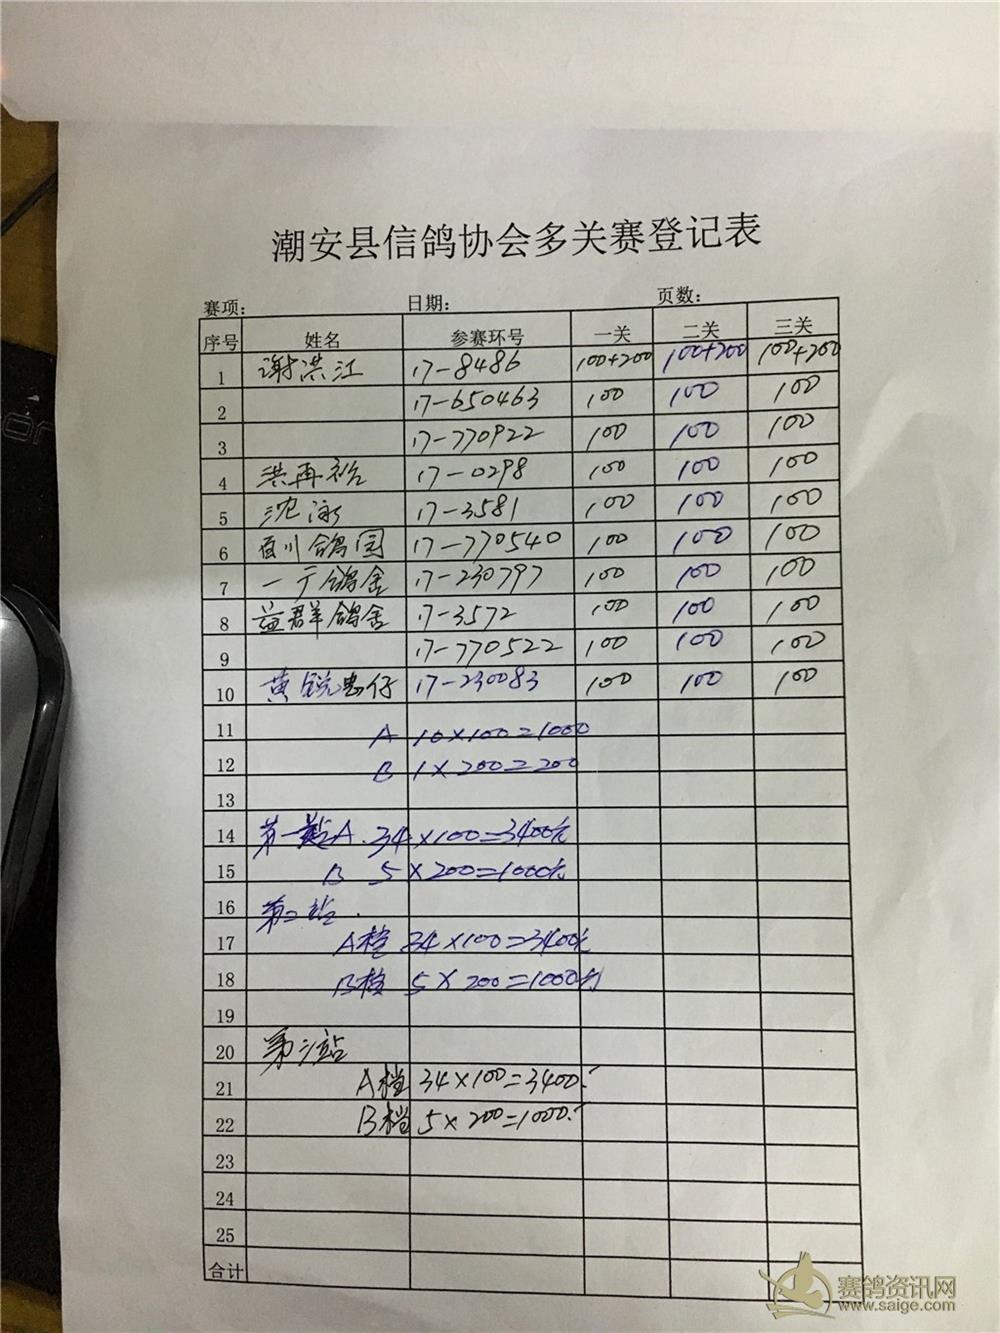 潮安县信鸽协会多关赛登记表
赛项: 日期: 页数:
序号 姓名 参赛环号 一关 二关 三关
1 谢洪江 17-8486 100+200 100+200 100+200
2 17-650463 100 100 100
3 17-770922 100 100 100
4 洪再裕 17-0298 100 100 100
5 沈泳 17-3581 100 100 100
6 百川鸽园 17-770540 100 100 100
7 一丁鸽舍 17-230797 100 100 100
8 益群鸽舍 17-3572 100 100 100
9 17-770522 100 100 100
10 黄锐忠仔 17-230083 100 100 100
11 A 10×100=1000
12 B 1×200=200
13
14 第一站A. 34×100=3400元
15 B 5×200=1000元
16 第二站.
17 A档 34×100=3400元
18 B档 5×200=1000元
19
20 第三站
21 A档 34×100=3400.-
22 B档 5×200=1000.-
23
24
25
合计
赛鸽资讯网
www.saige.com